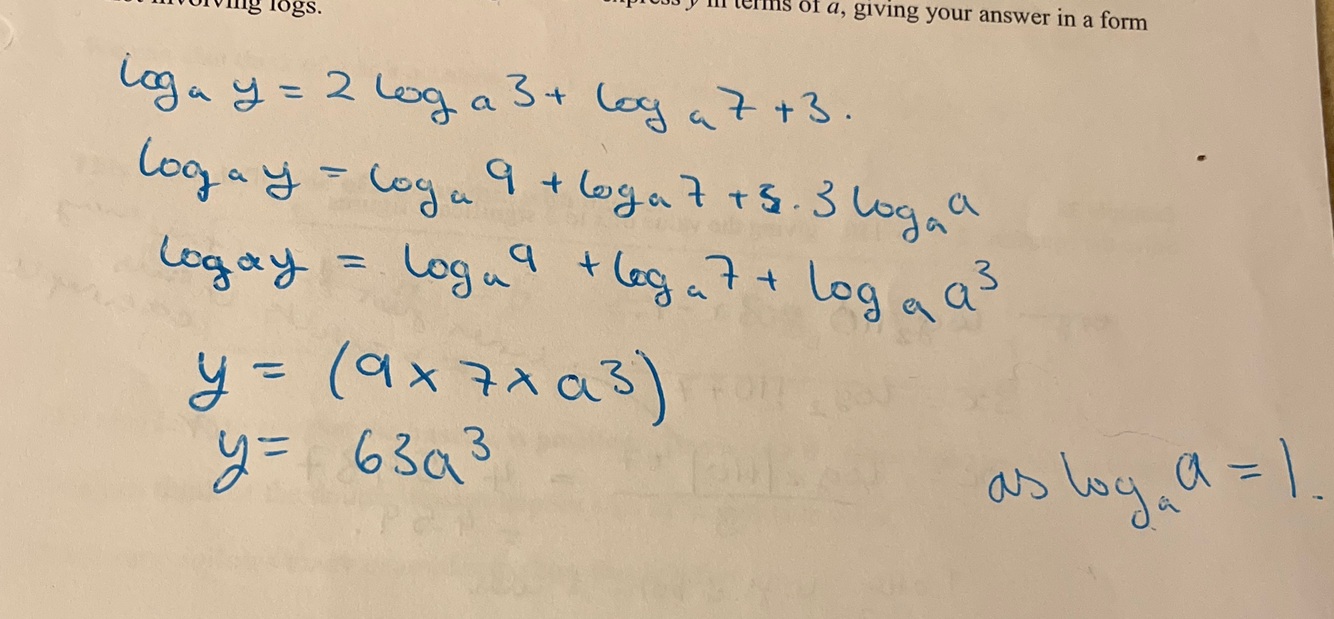 involving logs.
y in terms of a, giving your answer in a form
logₐ y = 2 logₐ 3 + logₐ 7 + 3.
logₐ y = logₐ 9 + logₐ 7 + 3 logₐ a
logₐ y = logₐ 9 + logₐ 7 + logₐ a³
y = (9 × 7 × a³)
y = 63a³
as logₐ a = 1.